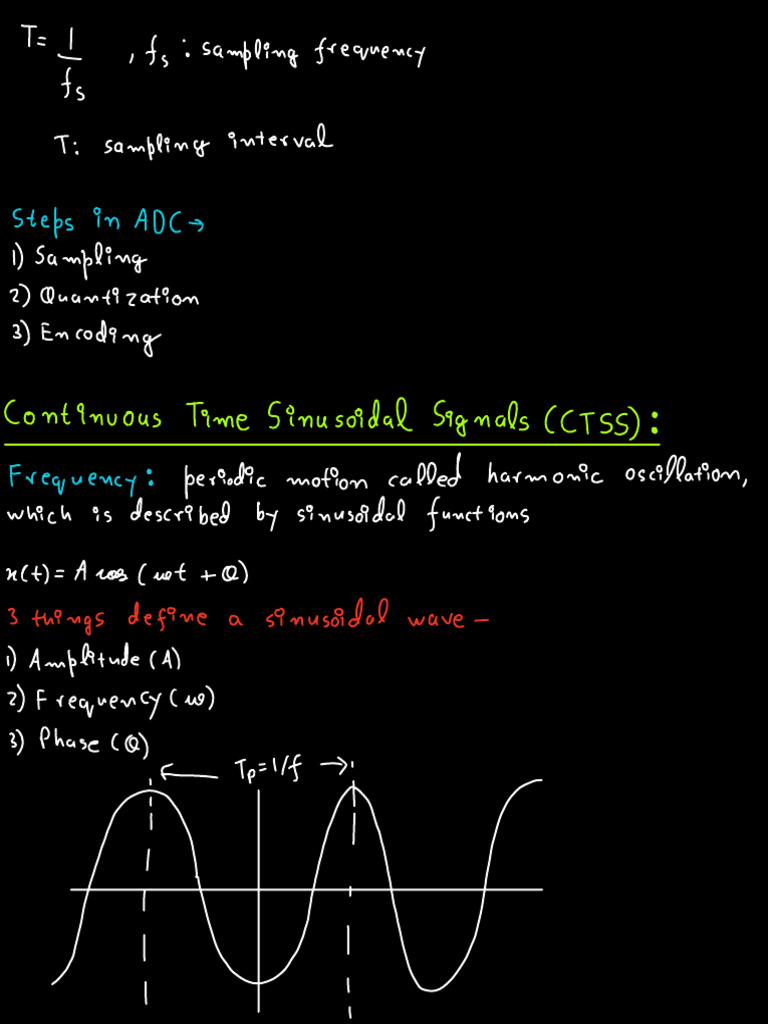 T = 1/fs , fs : sampling frequency
T: sampling interval
Steps in ADC →
1) Sampling
2) Quantization
3) Encoding
Continuous Time Sinusoidal Signals (CTSS):
Frequency: periodic motion called harmonic oscillation,
which is described by sinusoidal functions
x(t) = A cos (ωt + θ)
3 things define a sinusoidal wave –
1) Amplitude (A)
2) Frequency (ω)
3) Phase (θ)
← Tp = 1/f →